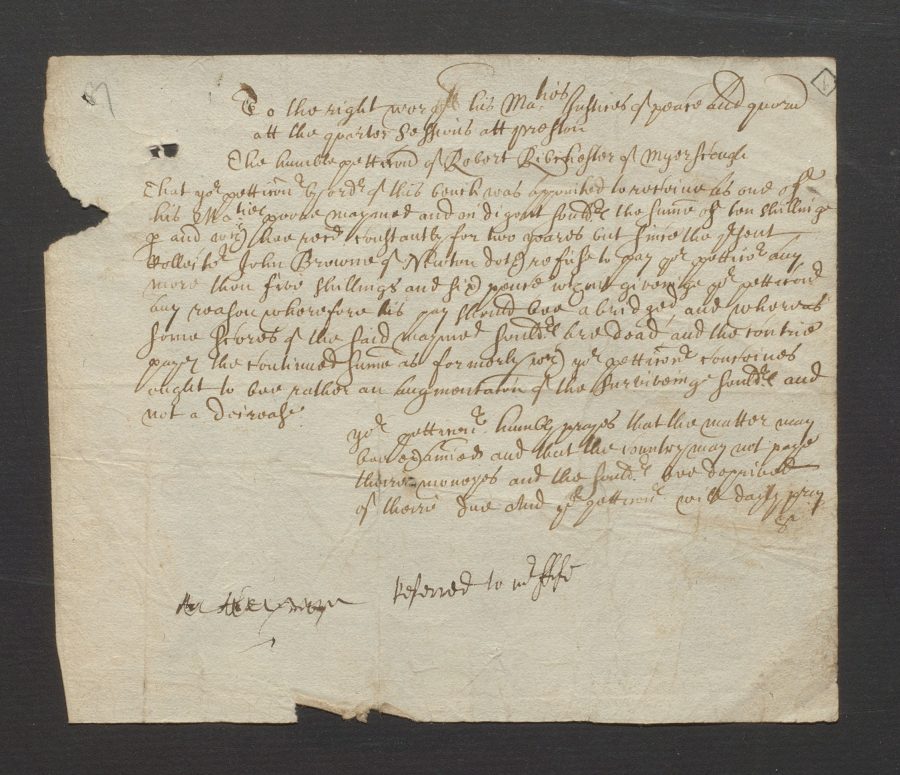 To the right worpll his Maties Justices of peace and quorū
att the quarter Sessions att preston
The humble petticon of Robert Ribchester of Myerscough
That yor petticonr by ordr of this bench was appointed to receive as one of
his Maties poore maymed and indigent sould's the summe of ten shillings
p and wch hee recd constantly for two yeares but since the psent
Collectr John Browne of Newton doth refuse to pay yor petticonr any
more then five shillings and six pence wthout giveinge yor petticonr
any reason wherefore his pay should bee abridged, and whereas
some scores of the said maymed sould's are dead and the contrie
payes the continued summe as formerly wch yor petticonr conceives
ought to bee rather an augmentation of the surviveinge sould's and
not a decrease
Yor petticonr humbly prayes that the matter may
bee examined and that the country may not paye
theire moneyes and the sould's bee deprived
of theire due And yor petticonr will daily pray
&c
Referred to